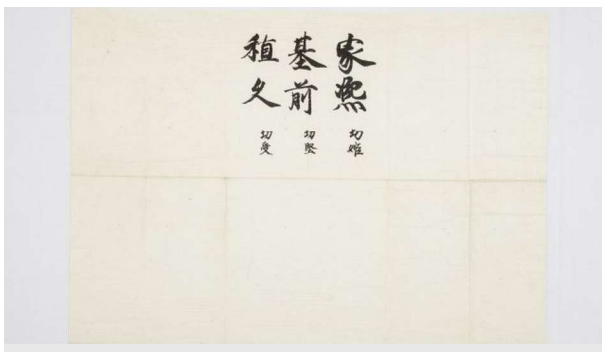 家熙 切姫
基前 切堅
稙久 切受